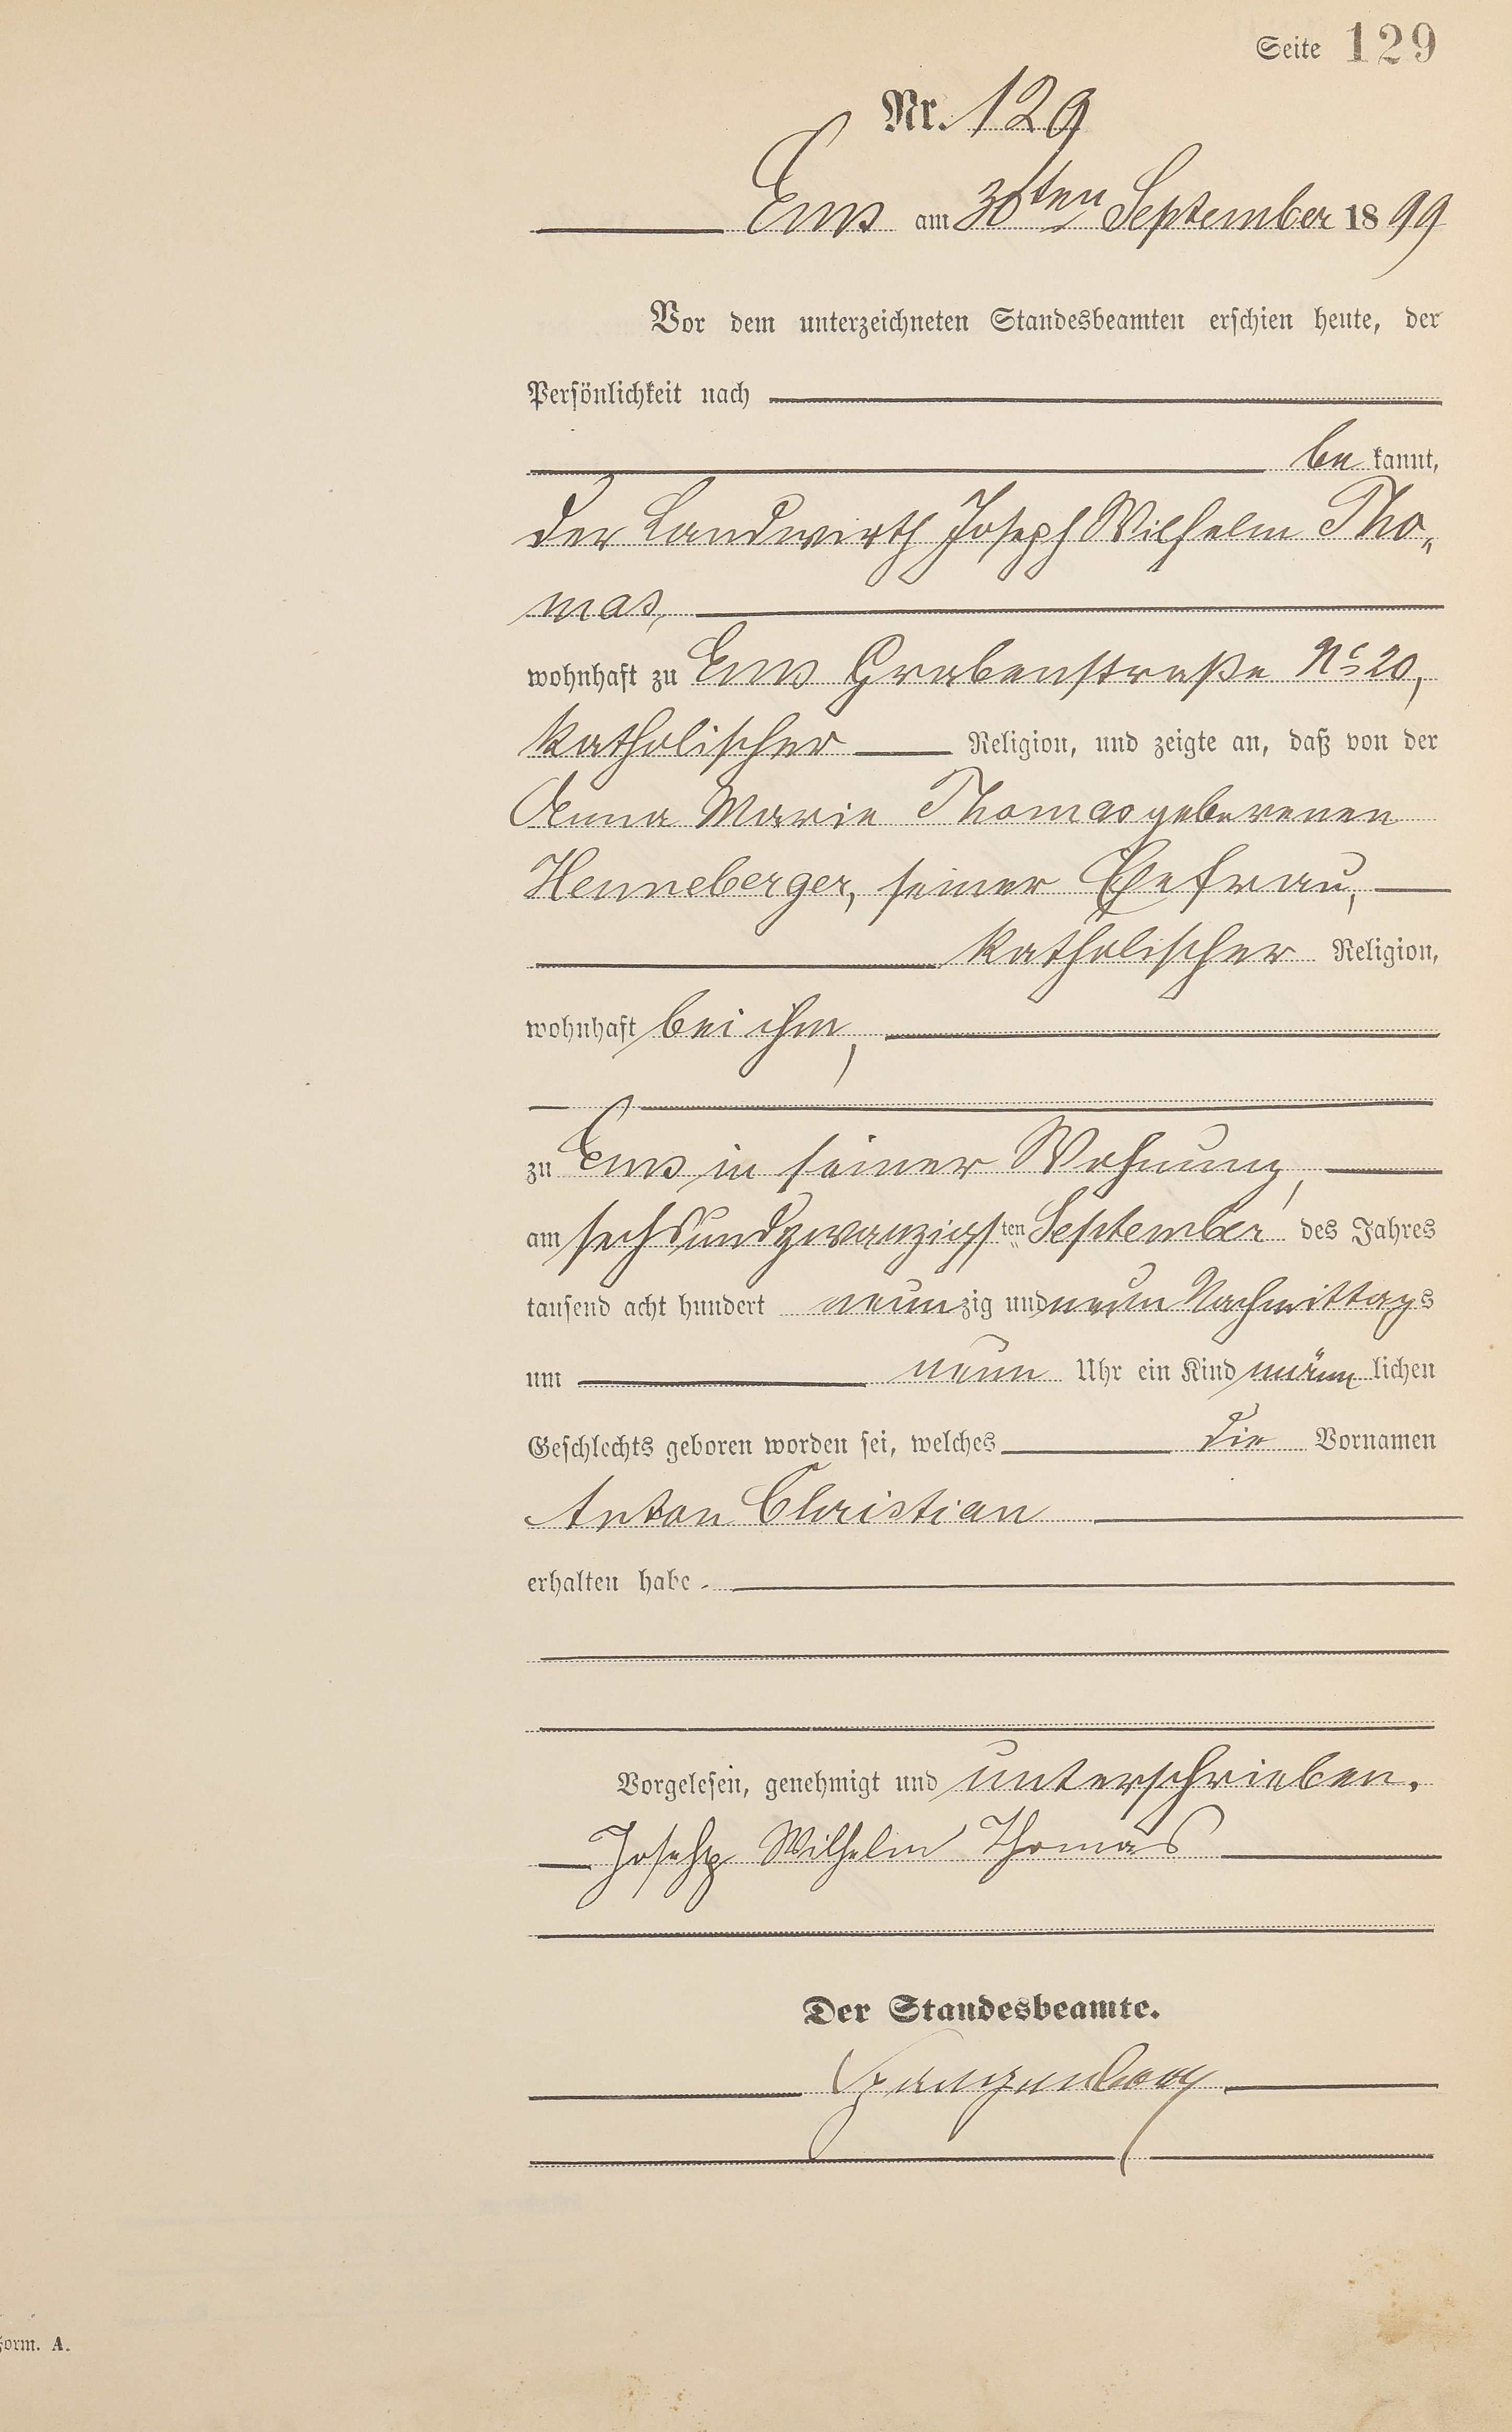 Seite 129
Nr. 129
Ems am 30ten September 1899
Vor dem unterzeichneten Standesbeamten erschien heute, der
Persönlichkeit nach
bekannt,
der Landwirth Joseph Wilhelm Tho„
mas,
wohnhaft zu Ems Grabenstraße No 20,
katholischer Religion, und zeigte an, daß von der
Anna Maria Thomas geborenen
Henneberger, seiner Ehefrau,
katholischer Religion,
wohnhaft bei ihm,
zu Ems in seiner Wohnung,
am sechsundzwanzigsten September des Jahres
tausend acht hundert neunzig und neun Nachmittags
um neun Uhr ein Kind männlichen
Geschlechts geboren worden sei, welches die Vornamen
Anton Christian
erhalten habe.
Vorgelesen, genehmigt und unterschrieben.
Josehp Wilhelm Thomas
Der Standesbeamte.
Form. A.